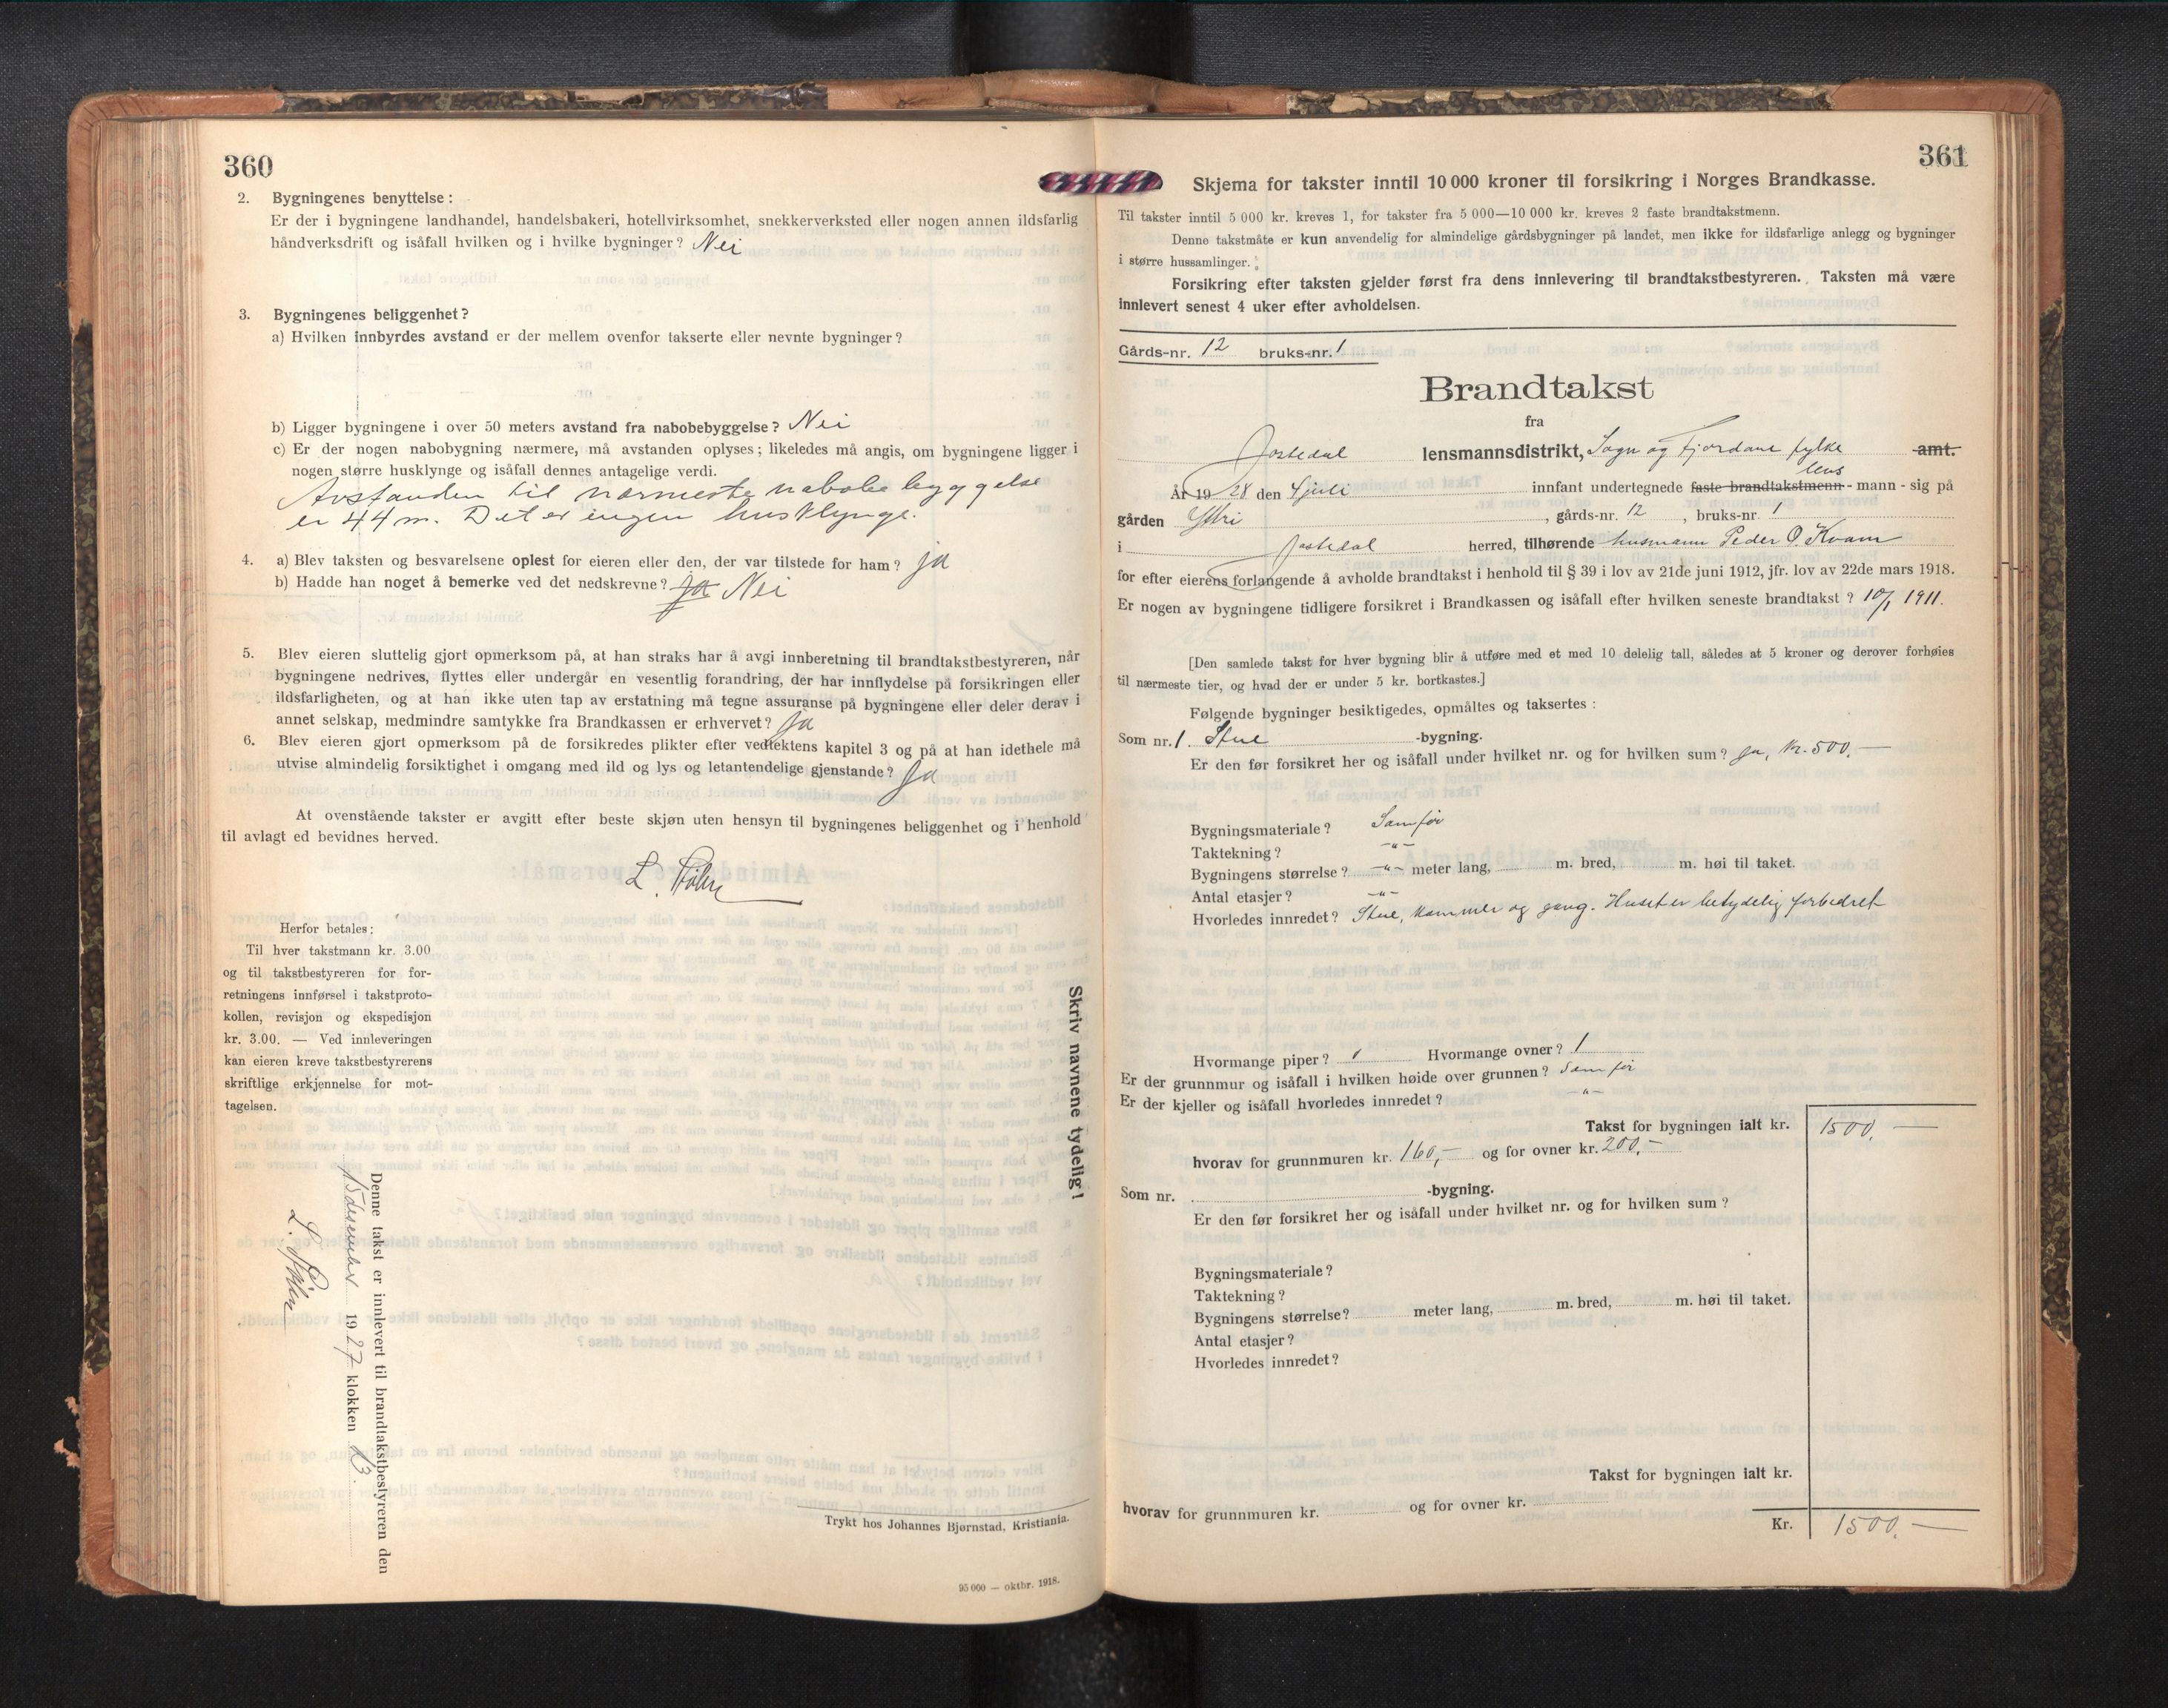 360
2. Bygningenes benyttelse:
Er der i bygningene landhandel, handelsbakeri, hotellvirksomhet, snekkerverksted eller nogen annen ildsfarlig
håndverksdrift og isåfall hvilken og i hvilke bygninger? Nei
3. Bygningenes beliggenhet?
a) Hvilken innbyrdes avstand er der mellem ovenfor takserte eller nevnte bygninger?
b) Ligger bygningene i over 50 meters avstand fra nabobebyggelse? Nei
c) Er der nogen nabobygning nærmere, må avstanden oplyses; likeledes må angis, om bygningene ligger i
nogen større husklynge og isåfall dennes antagelige verdi.
Avstanden til nærmeste nabobebyggelse
er 44 m. Det er ingen husklynge.
4. a) Blev taksten og besvarelsene oplest for eieren eller den, der var tilstede for ham? ja
b) Hadde han noget å bemerke ved det nedskrevne? ja Nei
5. Blev eieren sluttelig gjort opmerksom på, at han straks har å avgi innberetning til brandtakstbestyreren, når
bygningene nedrives, flyttes eller undergår en vesentlig forandring, der har innflydelse på forsikringen eller
ildsfarligheten, og at han ikke uten tap av erstatning må tegne assuranse på bygningene eller deler derav i
annet selskap, medmindre samtykke fra Brandkassen er erhvervet? ja
6. Blev eieren gjort opmerksom på de forsikredes plikter efter vedtektens kapitel 3 og på at han idethele må
utvise almindelig forsiktighet i omgang med ild og lys og letantendelige gjenstande? Ja
At ovenstående takster er avgitt efter beste skjøn uten hensyn til bygningenes beliggenhet og i henhold
til avlagt ed bevidnes herved.
L.
Herfor betales:
Til hver takstmann kr. 3.00
og til takstbestyreren for for-
retningens innførsel i takstproto-
kollen, revisjon og ekspedisjon
kr. 3.00. — Ved innleveringen
kan eieren kreve takstbestyrerens
skriftlige erkjennelse for mot-
tagelsen.
Skriv navnene tydelig!
Denne takst er innlevert til brandtakstbestyreren den
15 desember 1927 klokken 13.
L.
Trykt hos Johannes Bjørnstad, Kristiania.
95 000 — oktbr. 1918.
361
Skjema for takster inntil 10 000 kroner til forsikring i Norges Brandkasse.
Til takster inntil 5 000 kr. kreves 1, for takster fra 5 000—10 000 kr. kreves 2 faste brandtakstmenn.
Denne takstmåte er kun anvendelig for almindelige gårdsbygninger på landet, men ikke for ildsfarlige anlegg og bygninger
i større hussamlinger.
Forsikring efter taksten gjelder først fra dens innlevering til brandtakstbestyreren. Taksten må være
innlevert senest 4 uker efter avholdelsen.
Gårds-nr. 12 bruks-nr. 1
Brandtakst
fra
Jostedal lensmannsdistrikt, Sogn og Fjordane fylke amt.
År 19 28 den 4 juli innfant undertegnede faste brandtakstmenn lens - mann - sig på
gården Yttri, gårds-nr. 12, bruks-nr. 1
i Jostedal herred, tilhørende husmann Peder O. Kvam
for efter eierens forlangende å avholde brandtakst i henhold til § 39 i lov av 21de juni 1912, jfr. lov av 22de mars 1918.
Er nogen av bygningene tidligere forsikret i Brandkassen og isåfall efter hvilken seneste brandtakst? 10/1 1911.
[Den samlede takst for hver bygning blir å utføre med et med 10 delelig tall, således at 5 kroner og derover forhøies
til nærmeste tier, og hvad der er under 5 kr. bortkastes.]
Følgende bygninger besiktigedes, opmåltes og taksertes:
Som nr. 1 Stue -bygning.
Er den før forsikret her og isåfall under hvilket nr. og for hvilken sum? ja, kr. 500,—
Bygningsmateriale? Som før
Taktekning? —"—
Bygningens størrelse? —"— meter lang, m. bred, m. høi til taket.
Antal etasjer? —"—
Hvorledes innredet? Stue, kammer og gang. Huset er betydelig forbedret
Hvormange piper? 1 Hvormange ovner? 1
Er der grunnmur og isåfall i hvilken høide over grunnen? Som før
Er der kjeller og isåfall hvorledes innredet? —"—
Takst for bygningen ialt kr. 1500,—
hvorav for grunnmuren kr. 160,— og for ovner kr. 200,—
Som nr. -bygning.
Er den før forsikret her og isåfall under hvilket nr. og for hvilken sum?
Bygningsmateriale?
Taktekning?
Bygningens størrelse? meter lang, m. bred, m. høi til taket.
Antal etasjer?
Hvorledes innredet?
Takst for bygningen ialt kr.
hvorav for grunnmuren kr. og for ovner kr.
Kr. 1500,—